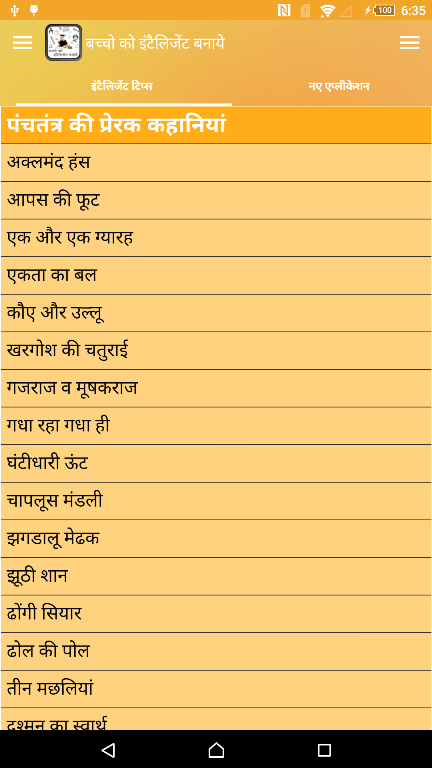 100 6:35
बच्चो को इंटैलिजेंट बनाये
इंटैलिजेंट टिप्स नए एप्लीकेशन
पंचतंत्र की प्रेरक कहानियां
अक्लमंद हंस
आपस की फूट
एक और एक ग्यारह
एकता का बल
कौए और उल्लू
खरगोश की चतुराई
गजराज व मूषकराज
गधा रहा गधा ही
घंटीधारी ऊंट
चापलूस मंडली
झगडालू मेढक
झूठी शान
ढोंगी सियार
ढोल की पोल
तीन मछलियां
दुश्मन का स्वार्थ